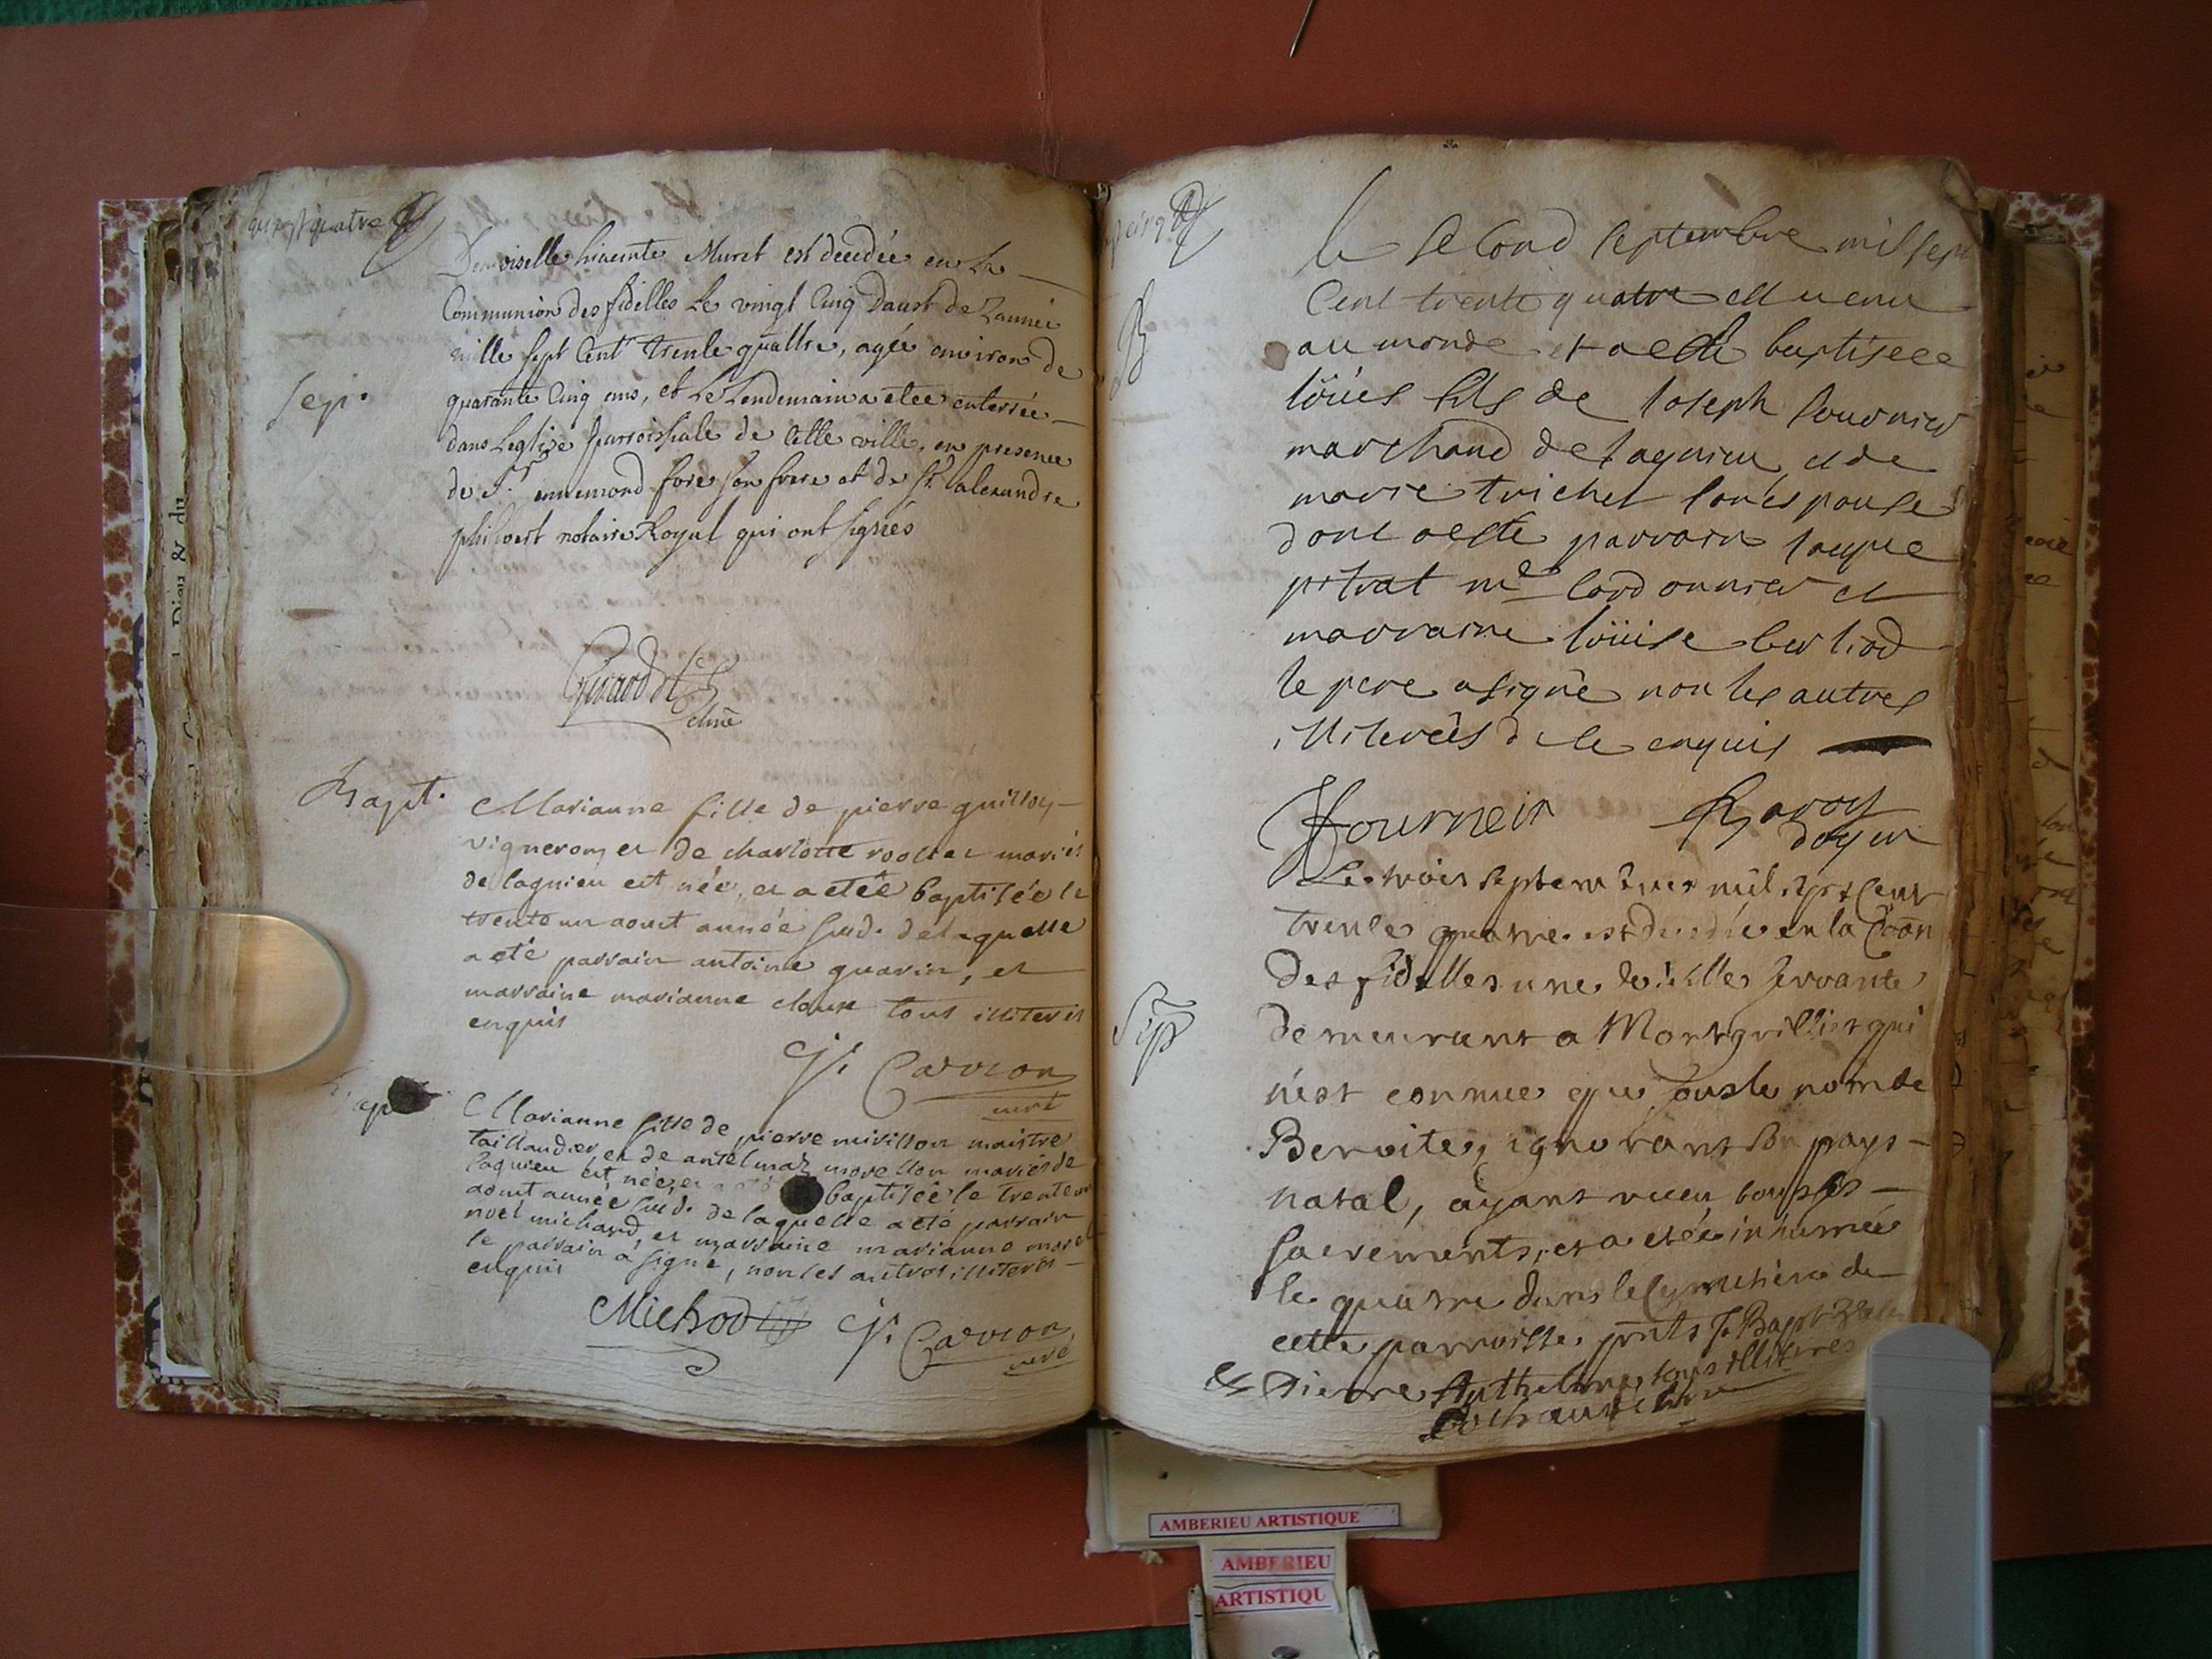 quatre
Demoiselle hiacinte Muret est decedée en la
Communion des fidelles Le vingt Cinq Daust de Lannée
mille sept Cent trente quattre, agée environ de
Sep.
quarante Cinq ans, et Le Lendemain a etee enterrée
dans Leglise parroissiale de Cette ville, en presence
de Sr. ennemond fore son frere et de Sr. alexandre
philbert notaire Royal qui ont signés
Bapt.
Marianne fille de pierre guilloy
vigneron, et de charlotte mariés
de lagnieu est née, et a etée baptisée le
trente un aout année sud. de laquelle
a eté parrain antoine guarin, et
marraine marianne tous illiterés
enquis
j. Carron
curé
Marianne fille de pierre mivillon maistre
taillandier, et de antelmaz morellon mariés de
lagnieu est née, et baptisée le trente un
aout année sud. de laquelle a eté parrain
noel michaud, et marraine marianne morel
le parrain a signé, non les autres illiterés
enquis
Michod j. Carron
curé
B
le second septembre mil sept
Cent trente quatre est uenu
au monde et a esté baptisee
loüis fils de Joseph fournier
marchand de lagnieu et de
marie trichet son espouse
dont a esté parrain Jaque
pitrat me Cordonnier et
marraine loüise berliod
le pere a signé non les autres
illiterés de ce enquis
Jfourneir Baroy
doyen
Le trois septembre mil sept cent
trente quatre est decedée en la Coion
Sep
des fidelles une vielle servante
demeurant a Montgrillier qui
n'est connue que sous le nom de
Benoite, ignorant son pays
natal, ayant receu tous ses
sacrements, et a etée inhumée
le quatre dans le Cymetiere de
cette parroisse. pnts J. Bapt
& Pierre Anthelme, tous illiteres
AMBERIEU ARTISTIQUE
AMBERIEU
ARTISTIQU